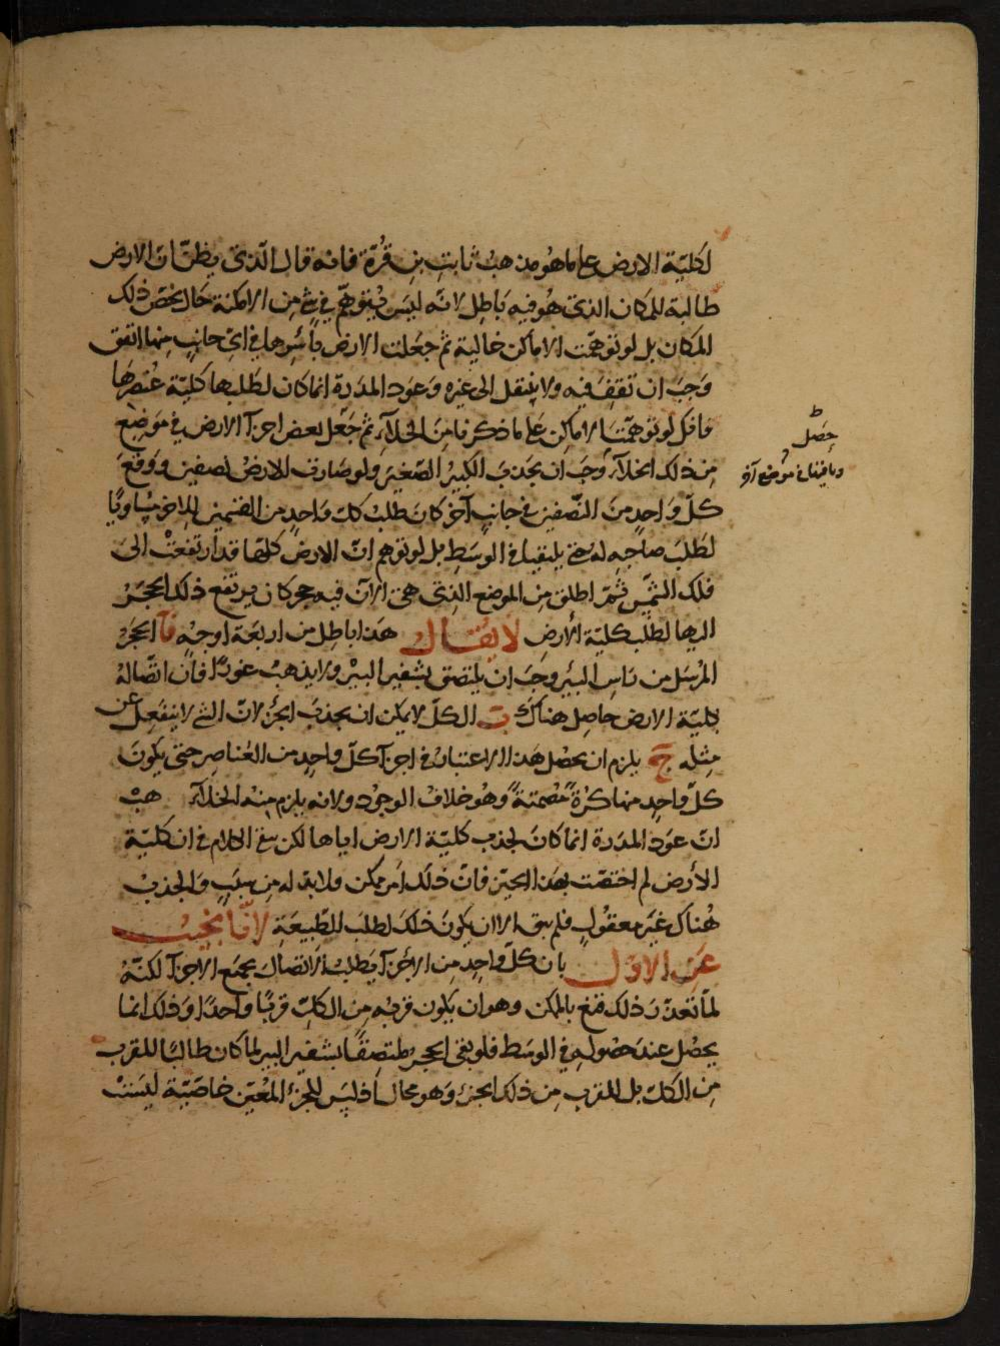 لكلية الارض على ما هو مذهب ثابت بن قرّة فانه قال الّذى يظنّ انّ الارض
طالبة للمكان الذى هو فيه باطل لانّه ليس يُتوهّم فى شئ من الامكنة حال يخصّ ذلك
المكان بل لو توهمت الاماكن خالية ثم جعلت الارض باسرها فى اىّ جانب منها اتفق
وجب ان تقف فيه ولا ينتقل الى غيره وعود المدرة انما كان لطلبها كليّة عنصرها
فاقل لو توهّمنا الاماكن على ما ذكرنا من الخلآء ثم جعل بعض اجزآ الارض فى موضع
من ذلك الخلآء وجب ان يجذب الكبير الصّغير ولو صارت الارض نصفين ووقع
كلّ واحد من النّصفين فى جانب آخر كان طلب كل واحد من القسمين للاخر مساويًا
لطلب صاحبه له حتى يلتقيا فى الوسط بل لو توهم انّ الارض كلّها قد ارتفعت الى
فلك الشمس ثم اطلق من الموضع الذى هى الآن فيه حجر كان يرتفع ذلك الحجر
اليها لطلب كلية الأرض لا يقال هذا باطل من اربعة اوجه آ الحجر
المرسل من راس البئر وجب ان يلتصق بشفير البير ولا يذهب غورًا فان اتّصاله
بكليّة الارض حاصل هناك ب الكلّ لا يمكن ان يجذب الجزء لانّ الشئ لا ينفعل عن
مثله ج يلزم ان يحصل هذا الاعتبار فى اجزآ كلّ واحد من العناصر حتى يكون
كلّ واحد منها كرة مصمتة وهو خلاف الوجود ولانه يلزم منه الخلآء هب
انّ عود المدرة انما كان لجذب كليّة الارض اياها لكن بقى الكلام فى ان كليّة
الأرض لم اختصّت بهذا الحيّز فانّ ذلك امر ممكن ولا بدّ له من سبب والجذب
هناك غير معقول فلم يبق الا ان يكون ذلك لطلب الطّبيعة لانّا نجيب
عن الاول بان كلّ واحد من الاجزآ يطلب الاتصال بجميع الاجزآ لكنّه
لمّا تعذّر ذلك قنع بالممكن وهو ان يكون قربه من الكلّ قربًا واحدًا وذلك انما
يحصل عند حصوله فى الوسط فلو بقى الحجر ملتصقًا بشفير البير لما كان طالبًا للقرب
من الكلّ بل للقرب من ذلك الجزء وهو محال اذ ليس للجزء المعيّن خاصّيّة ليست
حصل
وباقيها فى موضع آخر